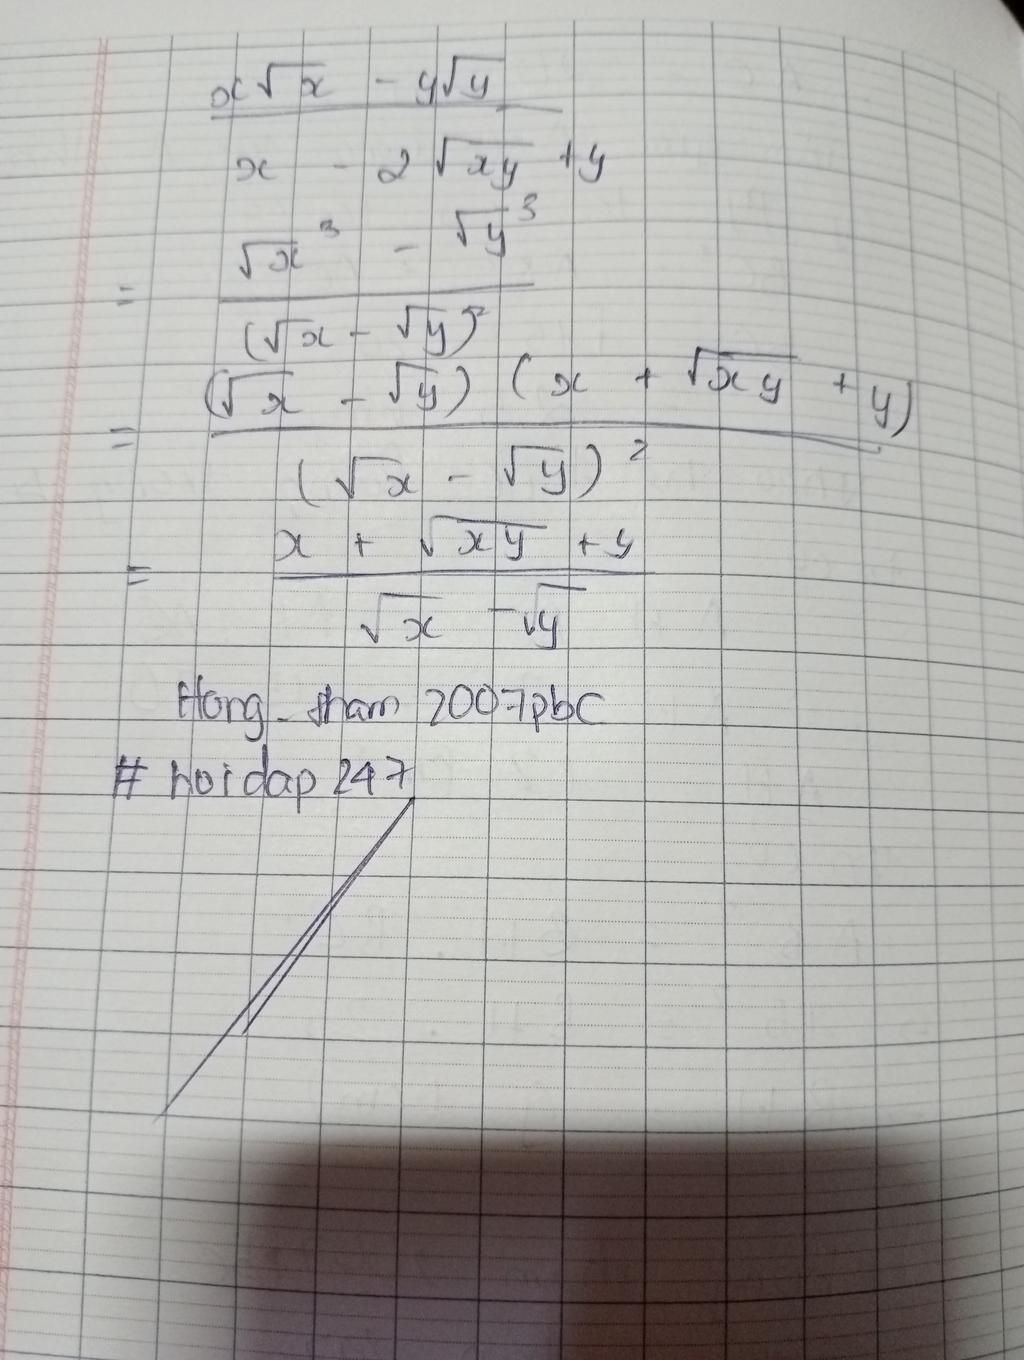 x√x - y√y
x - 2√xy + y
= √x³ - √y³
(√x - √y)²
= (√x - √y) (x + √xy + y)
(√x - √y)²
= x + √xy + y
√x - √y
Hong_tham 2007pbc
# hoidap 247